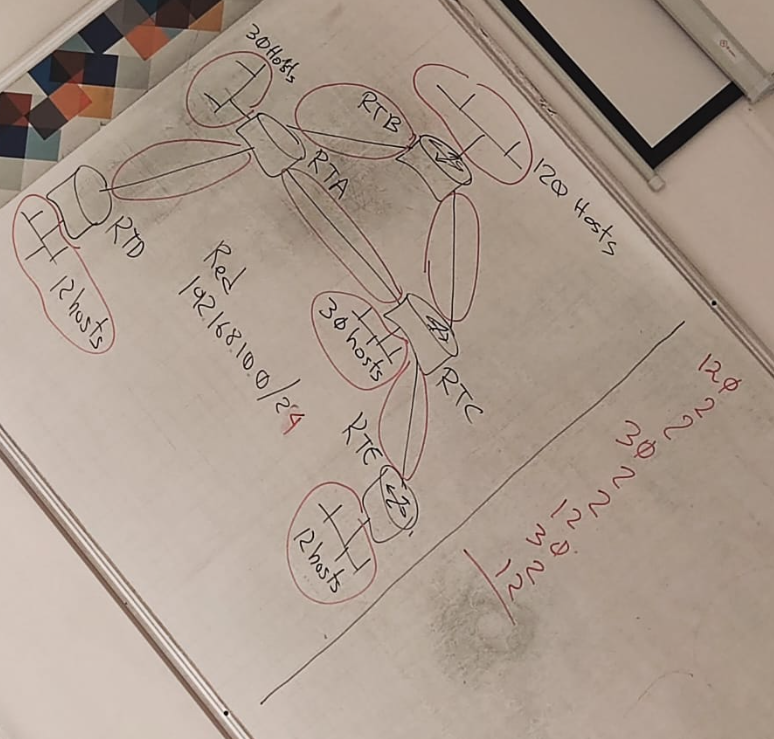 3Ø Hosts
RTB
RTA
12Ø Hosts
RTD
12 hosts
Red
192.168.10.0/24
3Ø hosts
RTC
RTE
12 hosts
12Ø
2
2
3Ø
2
2
12
3Ø
2
12